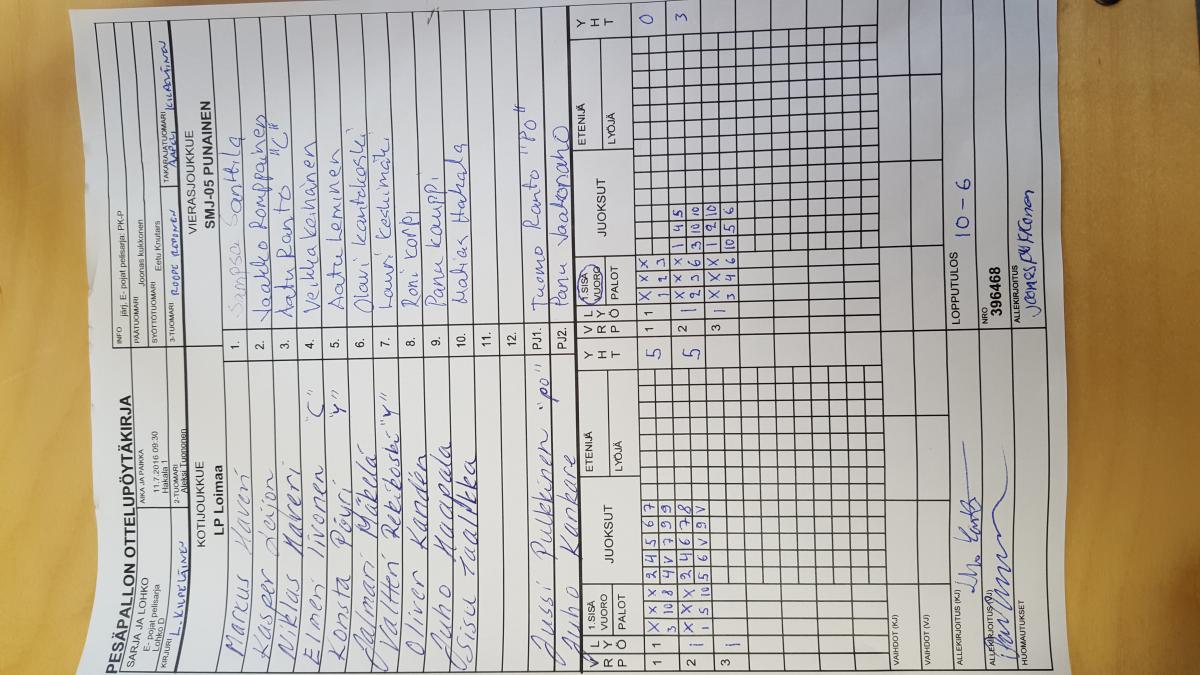 PESÄPALLON OTTELUPÖYTÄKIRJA
SARJA JA LOHKO
E- pojat pelisarja
Lohko D
AIKA JA PAIKKA
11.7.2016 09:30
Hakala 1
INFO järj. E- pojat pelisarja: PK-P
PÄÄTUOMARI Joonas kukkonen
SYÖTTÖTUOMARI Eetu Knutars
KIRJURI L. KILPELÄINEN
2-TUOMARI
Aleksi Tuononen
3-TUOMARI ROOPE ROPONEN
TAKARAJATUOMARI
KOTIJOUKKUE
LP Loimaa
VIERASJOUKKUE
SMJ-05 PUNAINEN
Markus Haveri 1. Sampsa Santtila
Kasper Leijon 2. Jaakko Romppainen
Niklas Haveri 3. Aatu Ranto "C"
Emeri Iivonen "C" 4. Veikka Keihänen
Konsta Pöyri "Y" 5. Aatu Leminen
Jalmari Mäkelä 6. Olavi Kantokoski
Valtteri Rekikoski "Y" 7. Lauri Keskimäki
Oliver Kandén 8. Roni Korpi
Juho Haapala 9. Panu Kauppi
Sisu Laalikka 10. Matias Hakala
11.
12.
Jussi Pulkkinen "PO" PJ1. Tuomo Ranto "PO"
Juho Kankare PJ2. Panu Jaakonaho
V P L R Y Ö 1.SISÄ VUORO PALOT JUOKSUT ETENIJÄ LYÖJÄ Y H T
V P L R Y Ö 1.SISÄ VUORO PALOT JUOKSUT ETENIJÄ LYÖJÄ Y H T
1 1 X X X 2 4 5 6 7 5 1 1 X X X 0
3 10 8 4 V 7 9 9 1 2 3
2 1 X X X 2 4 6 7 8 5 2 1 X X X 1 4 5 3
1 5 10 5 6 V 9 V 2 3 6 3 10 10
3 1 3 1 X X X 1 2 10
3 4 6 10 5 6
VAIHDOT (KJ)
VAIHDOT (VJ)
ALLEKIRJOITUS (KJ)
LOPPUTULOS 10 - 6
ALLEKIRJOITUS (VJ)
NRO
396468
HUOMAUTUKSET
ALLEKIRJOITUS